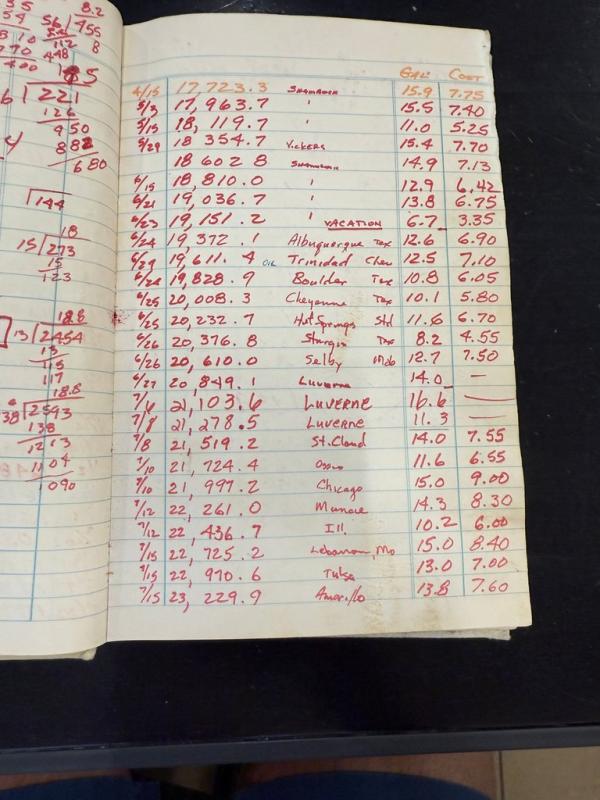 8.2
56 455
112 8
448
221
126
950
882
680
144
18
15 273
15
123
18.8
13 2454
13
115
117
18.8
138 2593
138
1213
1104
1090
GAL COST
4/15 17,723.3 SHAMROCK 15.9 7.75
5/3 17,963.7 " 15.5 7.40
5/15 18,119.7 " 11.0 5.25
5/29 18 354.7 Vickers 15.4 7.70
18 602 8 SHAMROCK 14.9 7.13
6/15 18,810.0 " 12.9 6.42
6/21 19,036.7 " 13.8 6.75
6/23 19,151.2 " 6.7 3.35
VACATION
6/24 19,372.1 Albuquerque Tex 12.6 6.90
6/24 19,611.4 OIL Trinidad Chev 12.5 7.10
6/24 19,828.9 Boulder Tex 10.8 6.05
6/25 20,008.3 Cheyenne Tex 10.1 5.80
6/25 20,232.7 Hot Springs Std 11.6 6.70
6/26 20,376.8 Sturgis Tex 8.2 4.55
6/26 20,610.0 Selby Mob 12.7 7.50
6/27 20,849.1 LUVERNE 14.0 —
7/6 21,103.6 LUVERNE 16.6 —
7/8 21,278.5 LUVERNE 11.3 —
7/8 21,519.2 St. Cloud 14.0 7.55
7/10 21,724.4 Osseo 11.6 6.55
7/10 21,997.2 Chicago 15.0 9.00
7/12 22,261.0 Muncie 14.3 8.30
7/12 22,436.7 Ill. 10.2 6.00
7/15 22,725.2 Lebanon, Mo 15.0 8.40
7/15 22,970.6 Tulsa 13.0 7.00
7/15 23,229.9 Amarillo 13.8 7.60